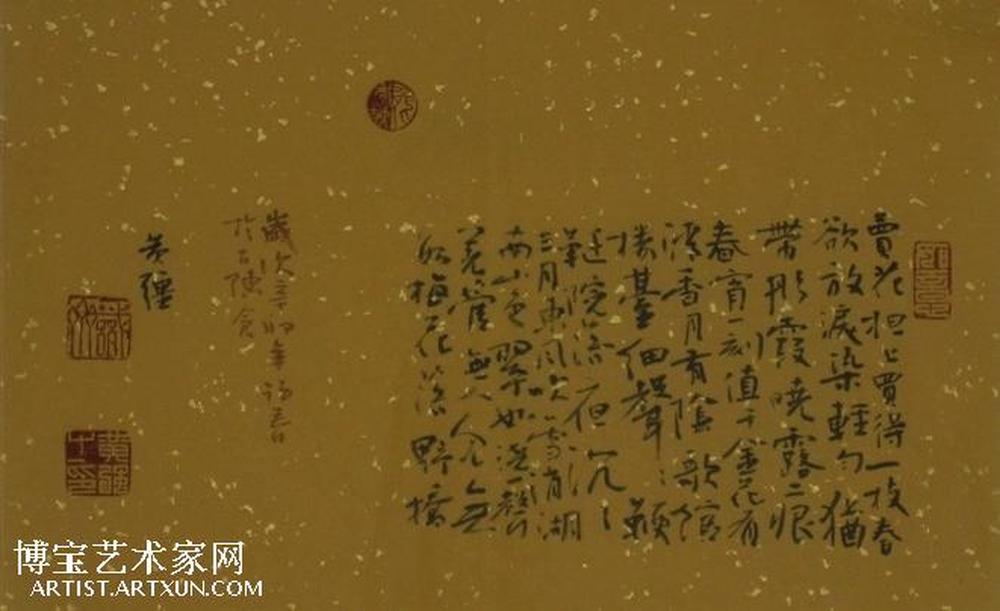 賣花担上買得一枝春
欲放淚染輕勻猶
帶彤霞曉露二痕
春宵一刻值千金花有
清香月有陰歌管
樓臺細聲〻鞦
韆院落夜沉〻
三月東風吹雪消湖
南山色翠如澆一聲
羌管無人会無
數梅花落野橋
歲次辛卯年
於古陳倉
黄疆
博宝艺术家网
ARTIST.ARTXUN.COM